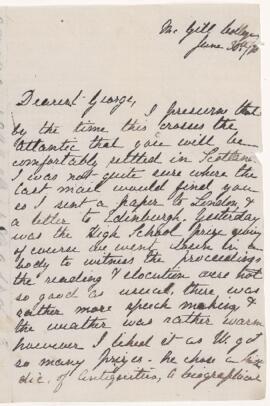 Mc Gill College
June 30th/70
Dearest George,
I presume that
by the time this crosses the
Atlantic that you will be
comfortably settled in Scotland
I was not quite sure where the
last mail would find you
so I sent a paper to London &
a letter to Edinburgh. Yesterday
was the High School prize giving
of course we went down in a
body to witness the proceedings
the reading & elocution were not
so good as usual, there was
rather more speech making &
the weather was rather warm
however I liked it as W. got
so many prizes. he chose a
dic. of antiquities, a biographical